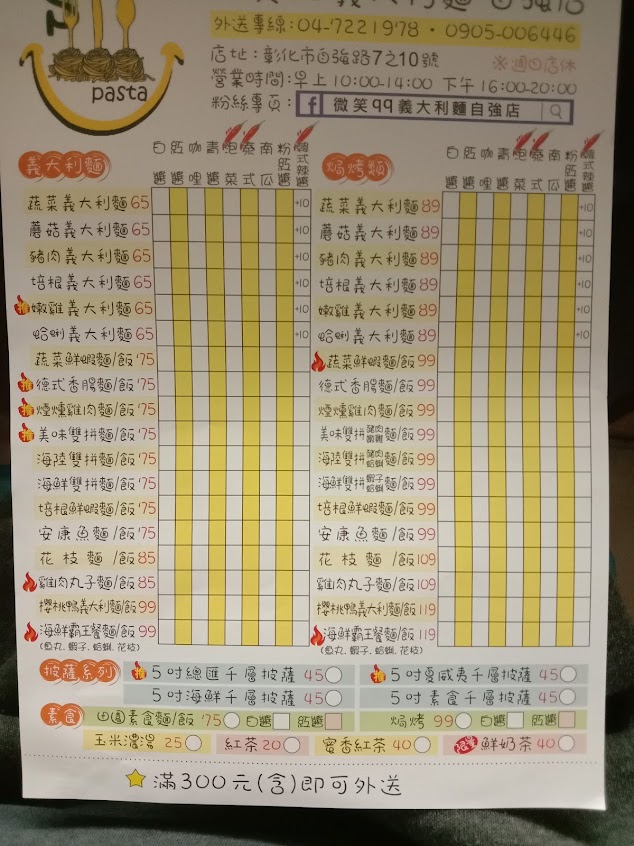 pasta
外送專線:04-7221978・0905-006446
店址:彰化市自強路7之10號 ※週四店休
營業時間:早上10:00-14:00 下午16:00-20:00
粉絲專頁: f 微笑99義大利麵自強店
義大利麵 白醬 紅醬 咖哩 青醬 泡菜 泰式 南瓜 粉紅醬 韓式辣醬
蔬菜義大利麵65 +10
蘑菇義大利麵65 +10
豬肉義大利麵65 +10
培根義大利麵65 +10
推 嫩雞義大利麵65 +10
蛤蜊義大利麵65 +10
蔬菜鮮蝦麵/飯'75
推 德式香腸麵/飯'75
推 煙燻雞肉麵/飯'75
推 美味雙拼麵/飯'75
海陸雙拼麵/飯'75
海鮮雙拼麵/飯'75
培根鮮蝦麵/飯'75
安康魚麵/飯'75
花枝麵/飯85
雞肉丸子麵/飯85
櫻桃鴨義大利麵/飯99
海鮮霸王餐麵/飯99
(魚丸.蝦子.蛤蜊.花枝)
焗烤類 白醬 紅醬 咖哩 青醬 泡菜 泰式 南瓜 粉紅醬 韓式辣醬
蔬菜義大利麵89 +10
蘑菇義大利麵89 +10
豬肉義大利麵89 +10
培根義大利麵89 +10
嫩雞義大利麵89 +10
蛤蜊義大利麵89 +10
蔬菜鮮蝦麵/飯99
德式香腸麵/飯99
煙燻雞肉麵/飯99
美味雙拼豬肉嫩雞麵/飯99
海陸雙拼豬肉蛤蜊麵/飯99
海鮮雙拼蝦子蛤蜊麵/飯99
培根鮮蝦麵/飯99
安康魚麵/飯99
花枝麵/飯109
雞肉丸子麵/飯109
櫻桃鴨義大利麵/飯119
海鮮霸王餐麵/飯119
(魚丸.蝦子.蛤蜊.花枝)
披薩系列 推 5吋總匯千層披薩 45 推 5吋夏威夷千層披薩 45
5吋海鮮千層披薩 45 5吋素食千層披薩 45
素食 田園素食麵/飯'75 白醬 紅醬 焗烤 99 白醬 紅醬
玉米濃湯 25 紅茶20 蜜香紅茶 40 鮮奶茶 40
滿300元(含)即可外送